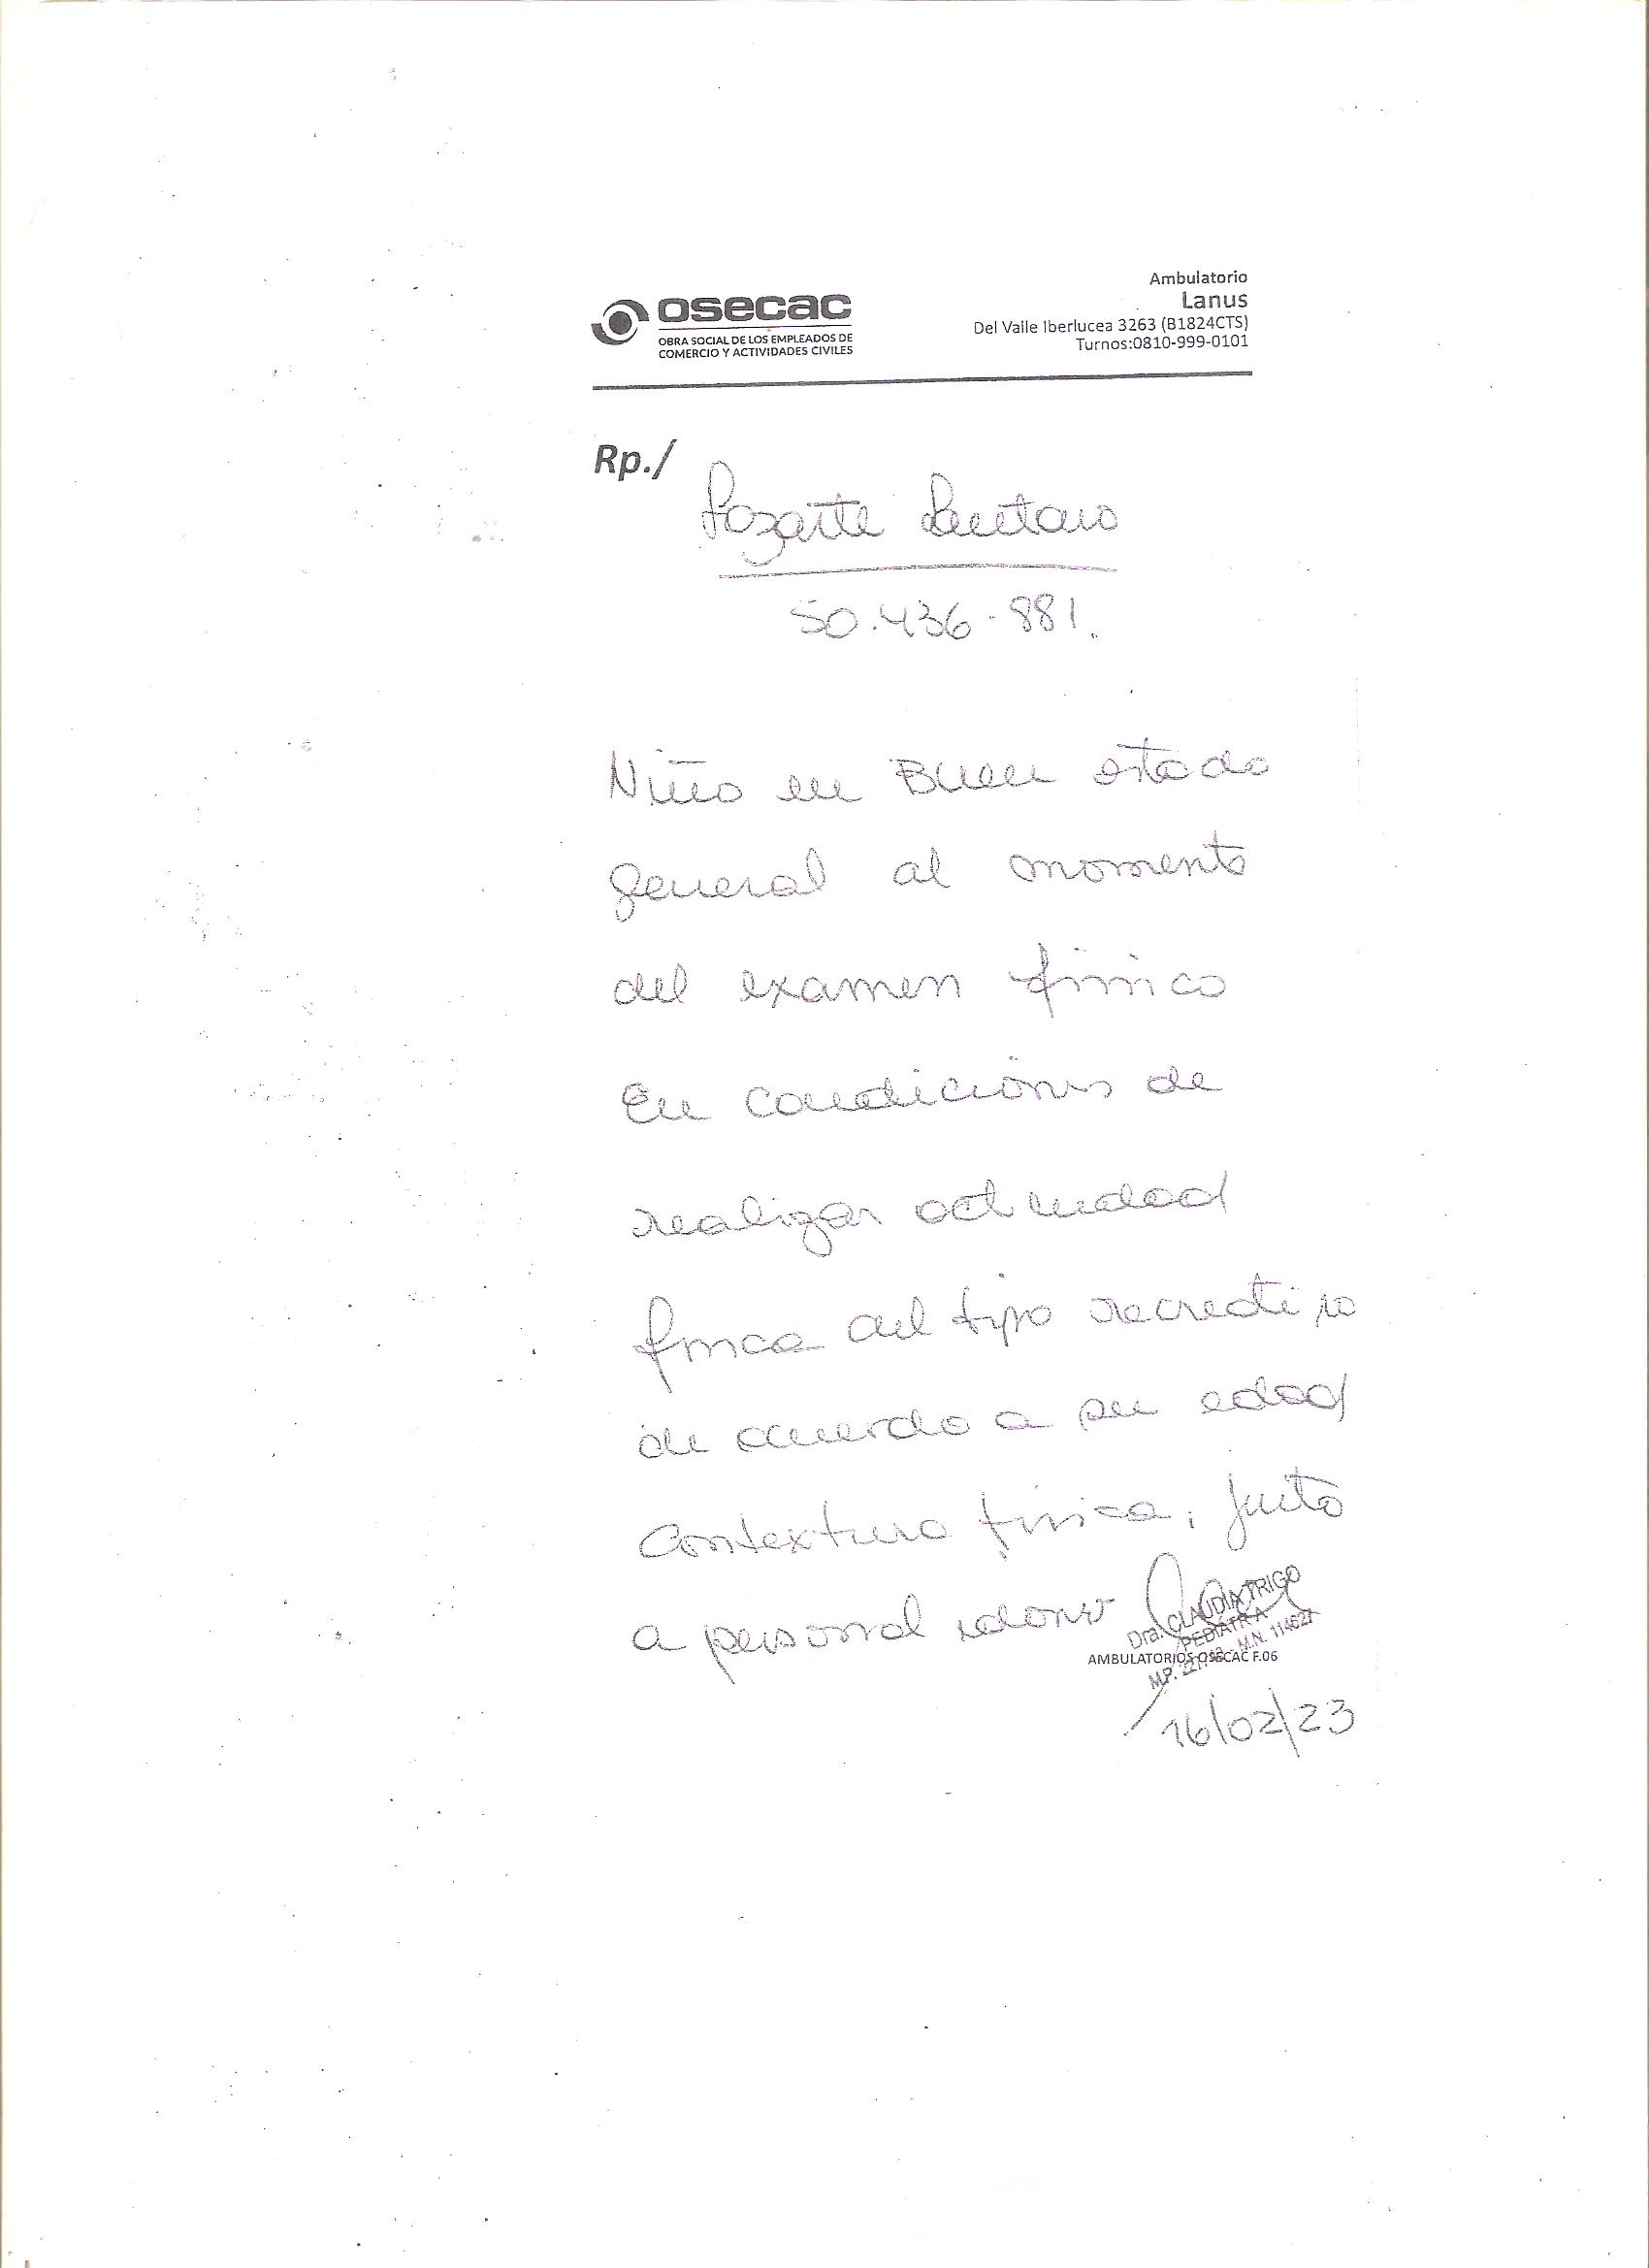 osecac
OBRA SOCIAL DE LOS EMPLEADOS DE
COMERCIO Y ACTIVIDADES CIVILES
Ambulatorio
Lanus
Del Valle Iberlucea 3263 (B1824CTS)
Turnos:0810-999-0101
Rp./
Lautaro
50.436-881.
Niño en Buen estado
general al momento
del examen físico
En condiciones de
realizar actividad
física del tipo recreativo
de acuerdo a su edad
contextura física, junto
a personal idoneo
Dra. CLAUDIA TRIGO
PEDIATRA
M.P. M.N. 114627
AMBULATORIOS OSECAC F.06
16/02/23